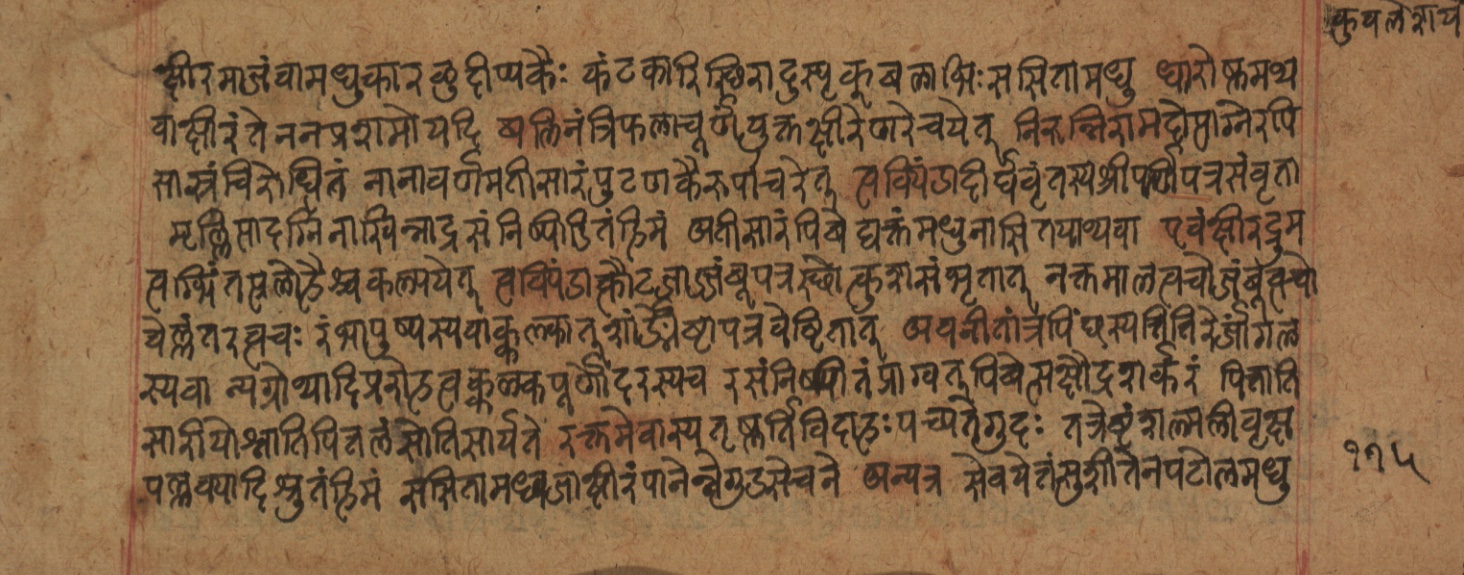 कुवलेशय
क्षीरमाजं वामधुकारलुद्दीप्यकैः कंटकारिस्थिरादुस्पृक् बलाभिः ससितामधु धारोष्णमथ
वाक्षीरं तेननप्रशमो यदि बलिनं त्रिफलाचूर्णयुक्तक्षीरेणरेचयेत् निरुन्निरामदोषाग्नेरपि
सास्रं विरोधितं नानावर्णमतीसारं पुटपाकैरुपाचरेत् त्वक्पिंडादीर्घवृंतस्य श्रीपर्णीपत्रसंवृता
मृल्लिप्तादग्निनास्विन्नाद्रसं निष्पीडितं हिमं अतीसारं पिबेद्युक्तं मधुनासितयाथवा एवं क्षीरद्रुम
त्वग्भिस्तत्प्ररोहैश्च कल्पयेत् त्वक्पिंडात्कौटजाज्जंबूपत्रस्थात्कुशसंभृतात् नक्तमालत्वचोजंबूत्वचो
वेल्लंतरत्वचः रंभापुष्पस्य वा
स्यवा न्यग्रोधादिप्ररोह पूर्णोदरस्यच रसंनिष्पीतं प्राग्वत् पिबेत्सक्षौद्रशर्करं पित्ताति
सारीयोश्नातिपित्तलं सोतिसार्यते रक्तमेवास्य तृष्णार्तिविदाहः पच्यतेगुदः तत्रेष्टं शाल्मलीवृक्ष
पल्लवत्यादिश्रुतं हिमं ससितामध्वजाक्षीरं पानेन्नेगुदसेचने अन्यत्र सेवयेत्तंसुशीतेनपटोलमधु
१७५